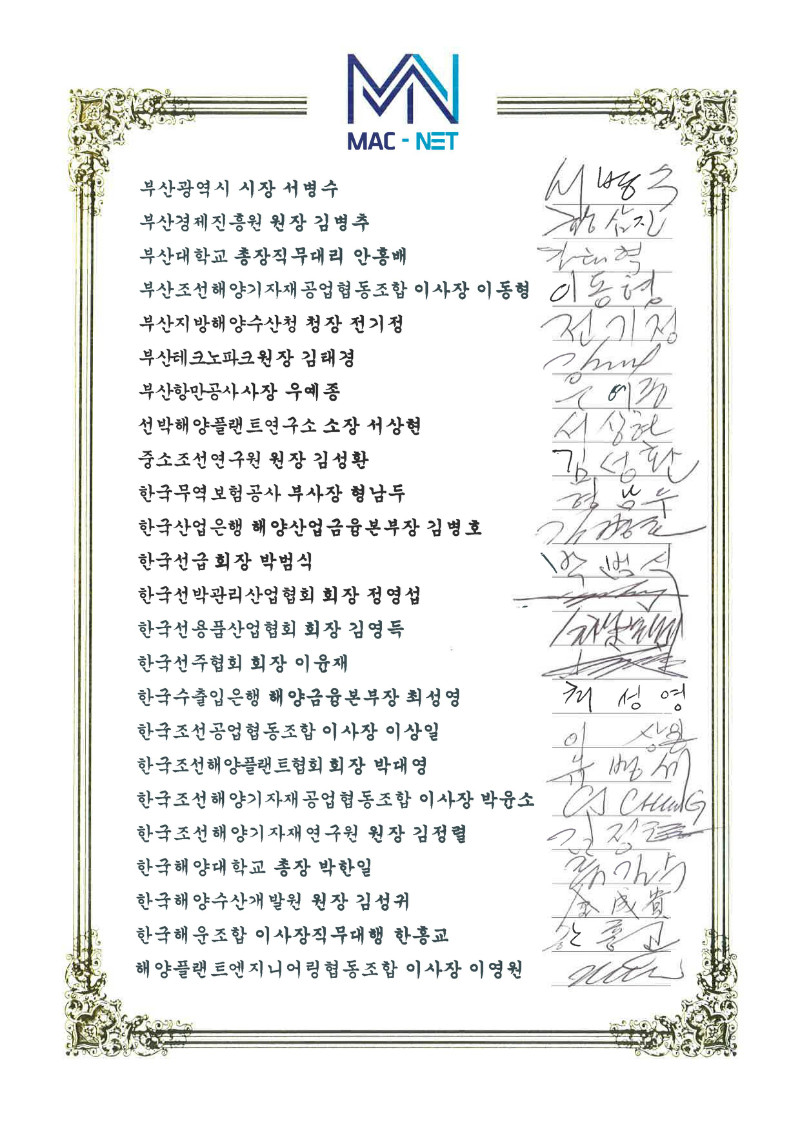 MN
MAC - NET
부산광역시 시장 서병수 서병수
부산경제진흥원 원장 김병추
부산대학교 총장직무대리 안홍배
부산조선해양기자재공업협동조합 이사장 이동형 이동형
부산지방해양수산청 청장 전기정 전기정
부산테크노파크원장 김태경
부산항만공사사장 우예종 우예종
선박해양플랜트연구소 소장 서상현 서상현
중소조선연구원 원장 김성환 김성환
한국무역보험공사 부사장 형남두 형남두
한국산업은행 해양산업금융본부장 김병호
한국선급 회장 박범식 박범식
한국선박관리산업협회 회장 정영섭
한국선용품산업협회 회장 김영득
한국선주협회 회장 이윤재
한국수출입은행 해양금융본부장 최성영 최성영
한국조선공업협동조합 이사장 이상일
한국조선해양플랜트협회 회장 박대영
한국조선해양기자재공업협동조합 이사장 박윤소 CS CHUNG
한국조선해양기자재연구원 원장 김정렬
한국해양대학교 총장 박한일
한국해양수산개발원 원장 김성귀 金成貴
한국해운조합 이사장직무대행 한홍교
해양플랜트엔지니어링협동조합 이사장 이영원